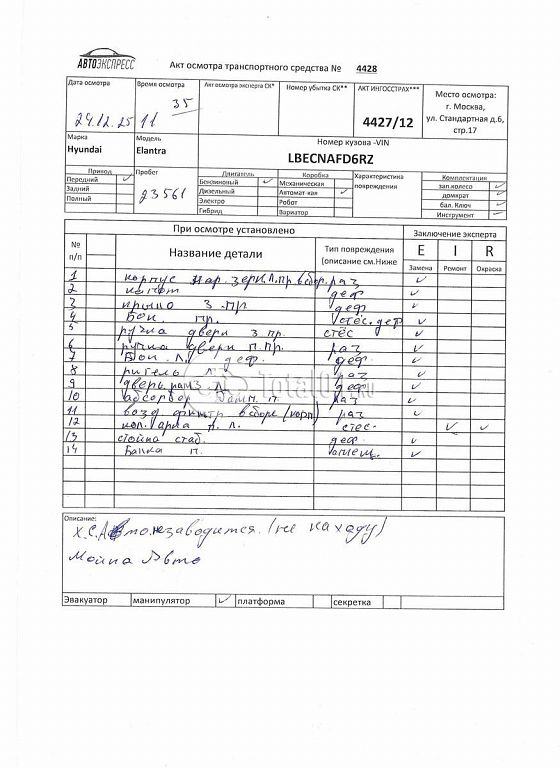 АВТОЭКСПРЕСС
Акт осмотра транспортного средства № 4428
Дата осмотра Время осмотра Акт осмотра эксперта СК* Номер убытка СК** АКТ ИНГОССТРАХ*** Место осмотра:
24.12.25 11 35 4427/12 г. Москва,
ул. Стандартная д.6,
стр.17
Марка Модель Номер кузова -VIN
Hyundai Elantra LBECNAFD6RZ
Привод Пробег Двигатель Коробка Характеристика повреждения Комплектация
Передний ✓ 23561 Бензиновый ✓ Механическая зап.колесо ✓
Задний Дизельный Автомат-кая ✓ домкрат
Полный Электро Робот бал. Ключ ✓
Гибрид Вариатор Инструмент ✓
При осмотре установлено Заключение эксперта
№ п/п Название детали Тип повреждения (описание см.Ниже E I R
Замена Ремонт Окраска
1 корпус нар. зерк. п. пр в сбор. раз ✓
2 капот деф ✓
3 крыло З. пр деф ✓
4 Бок. пр. стёс. деф ✓
5 ручка двери з. пр. стёс ✓
6 ручка двери п. пр. раз ✓
7 Бок. Л. деф. деф ✓
8 ригель Л. раз ✓
9 дверь деф ✓
10 абсорбер бамп. п. раз ✓
11 возд фильтр в сборе (корп) раз ✓
12 арка л. стёс. ✓ ✓
13 стойка стаб. деф. ✓
14 Балка п. ✓
Описание:
Х.С. Авто незаводится. (не на ходу)
Мойка Авто
Эвакуатор манипулятор ✓ платформа секретка